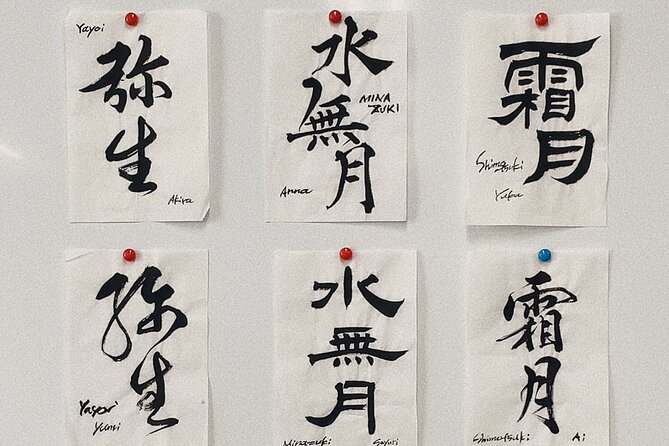 Yayoi
弥
生
Akira
水
MINA
ZUKI
無
月
Anna
霜
月
Shimotsuki
Yuka
弥
生
Yayoi
Yumi
水
無
月
Minazuki
Sayuri
霜
月
Shimotsuki
Ai